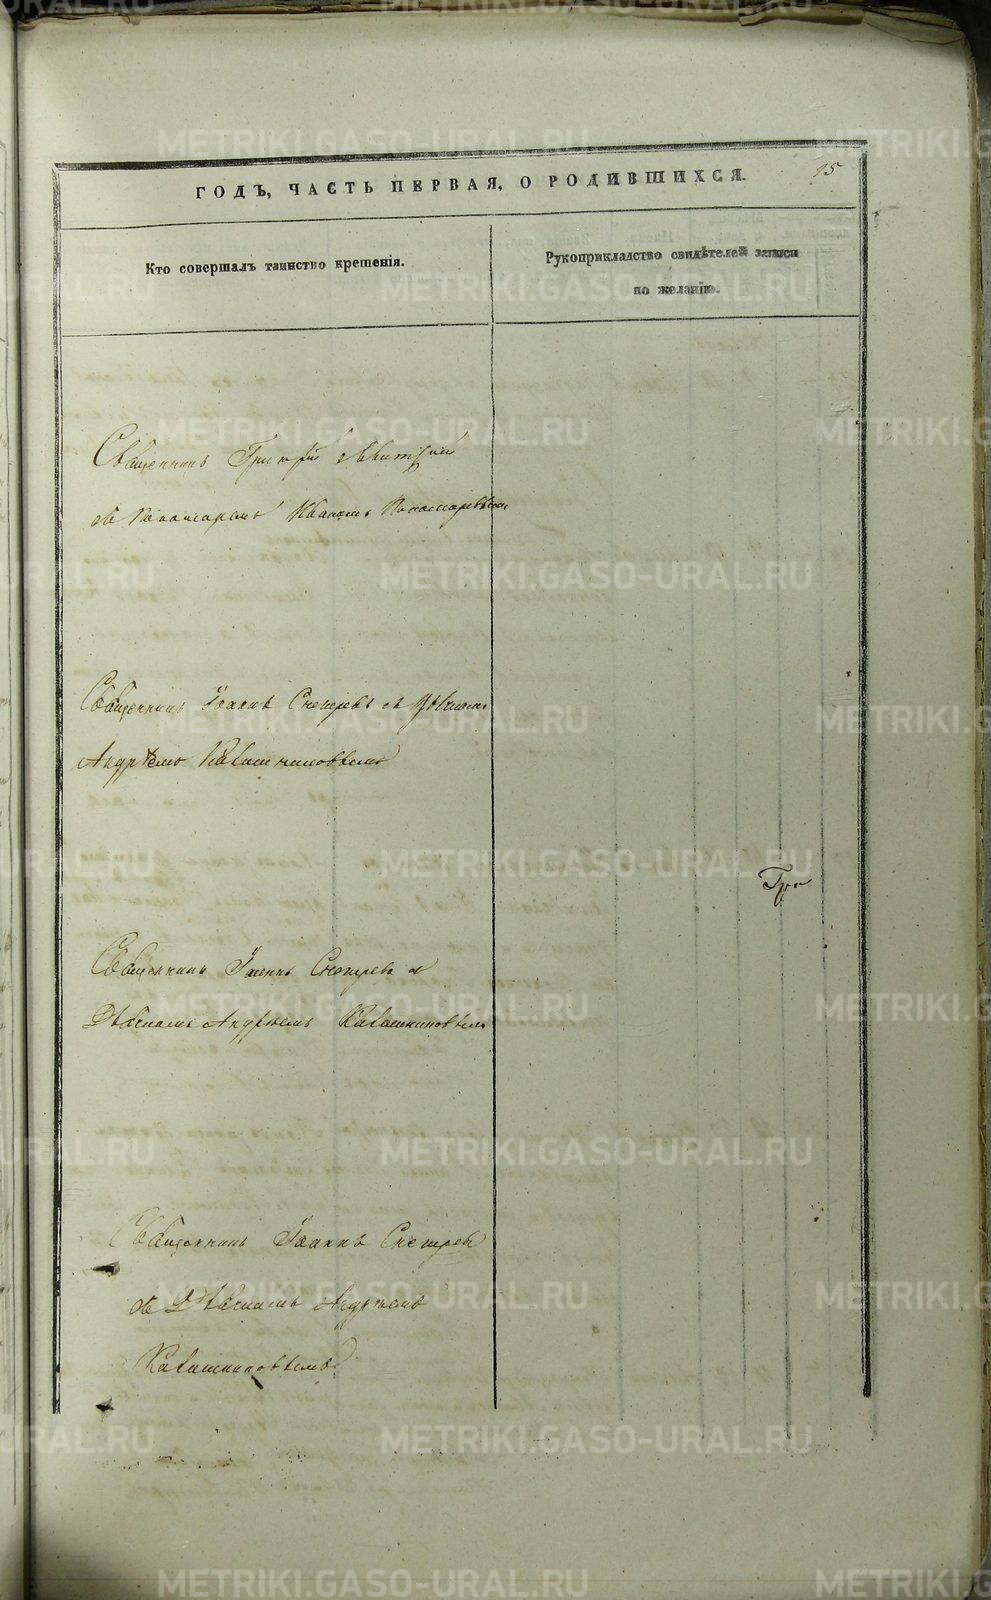 ГОДЪ, ЧАСТЬ ПЕРВАЯ, О РОДИВШИХСЯ.
Кто совершалъ таинство крещенія.
Рукоприкладство свидѣтелей записи
по желанію.
Священникъ Григорій Левитскій
съ Пономаремъ Иваномъ Пономаревымъ
Священникъ Іоаннъ Снегиревъ съ Дьячкомъ
Андреемъ Калашниковымъ
Священникъ Іоаннъ Снегиревъ съ
Дьячкомъ Андреемъ Калашниковымъ
Священникъ Іоаннъ Снегиревъ
съ Дьячкомъ Андреемъ
Калашниковымъ
METRIKI.GASO-URAL.RU